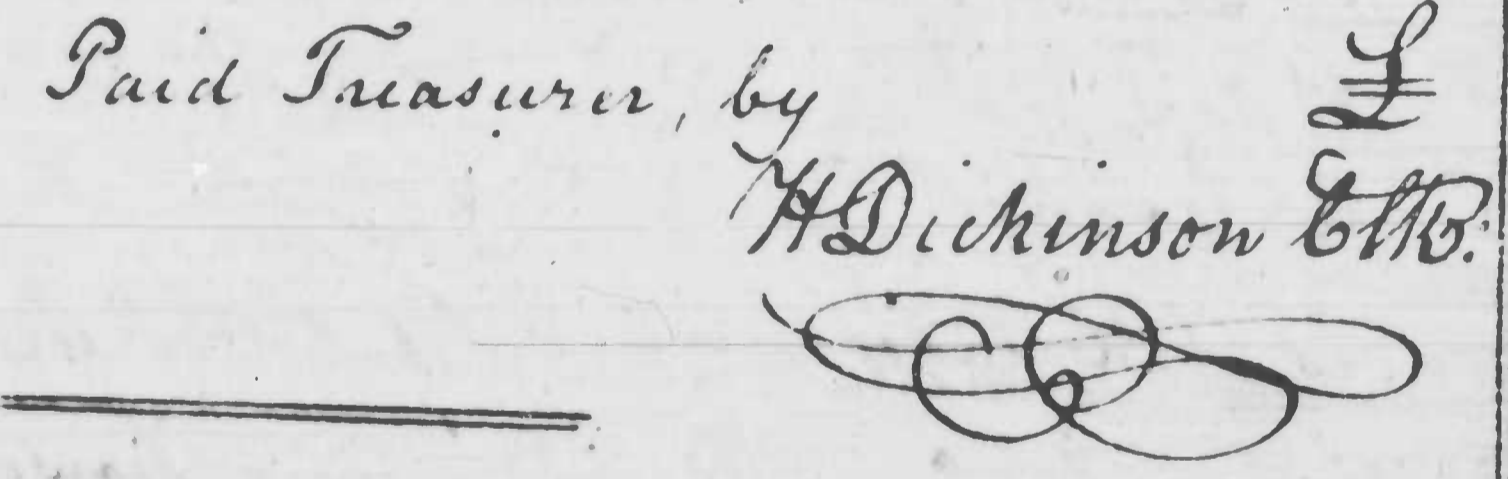 Paid Treasurer, by £
H Dickinson Clk.